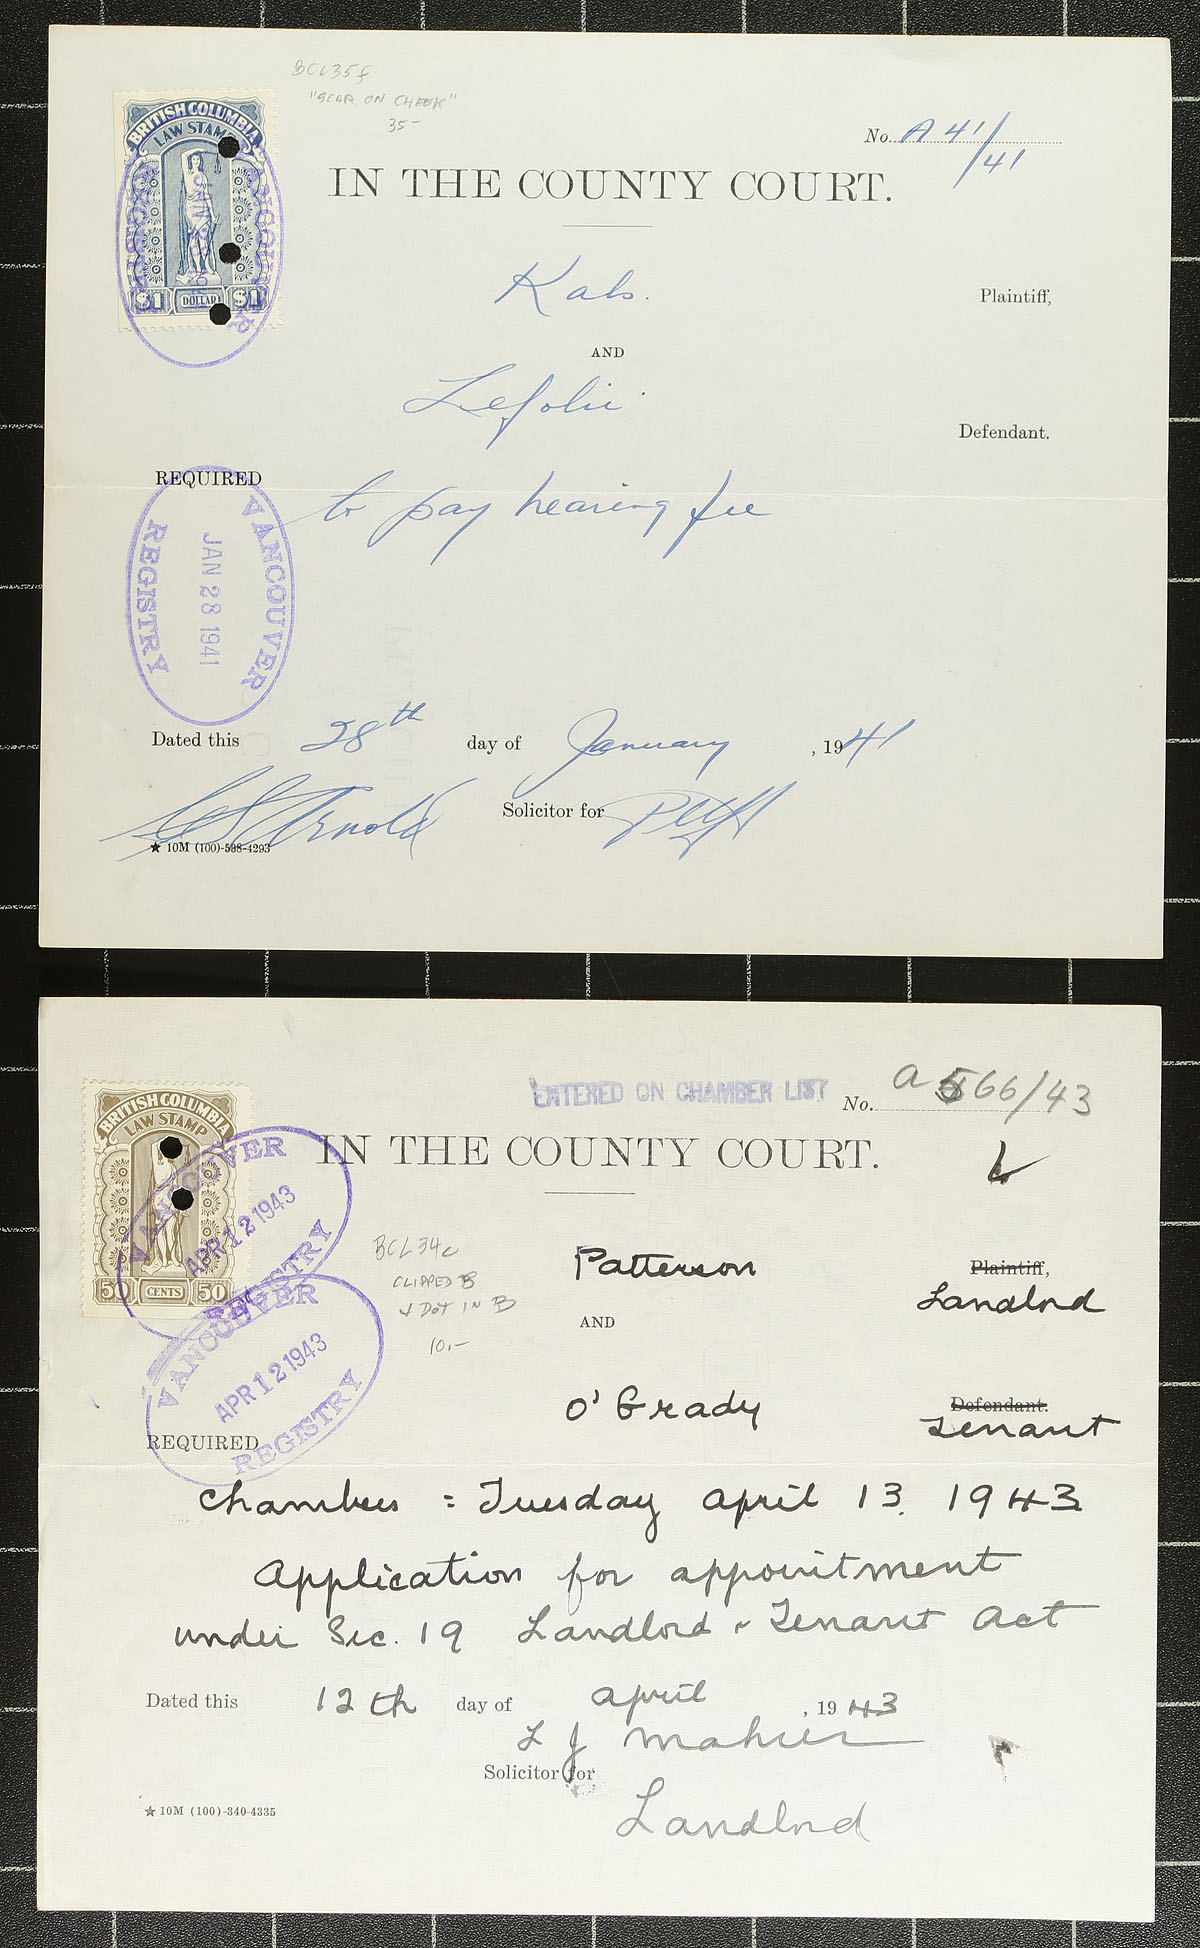 BCL35f
"SCAR ON CHEEK"
35-
BRITISH COLUMBIA
LAW STAMP
$1 DOLLAR $1
No. A 41/41
IN THE COUNTY COURT.
Kals.
Plaintiff,
AND
Lefolii
Defendant.
REQUIRED
to pay hearing fee
VANCOUVER
JAN 28 1941
REGISTRY
Dated this 28th day of January, 1941
Arnold Solicitor for Pltff
★ 10M (100)-538-4293
BRITISH COLUMBIA
LAW STAMP
50 CENTS 50
ENTERED ON CHAMBER LIST
No. A 566/43
IN THE COUNTY COURT.
VANCOUVER
APR 12 1943
REGISTRY
BCL34c
CLIPPED B
+ DOT IN B
10.-
Patterson
Plaintiff,
Landlord
AND
O'Grady
Defendant.
Tenant
VANCOUVER
APR 12 1943
REGISTRY
REQUIRED
Chambers = Tuesday April 13. 1943
Application for appointment
under Sec. 19 Landlord & Tenant Act
Dated this 12th day of April, 1943
L J
Solicitor for
Landlord
★ 10M (100)-340-4335